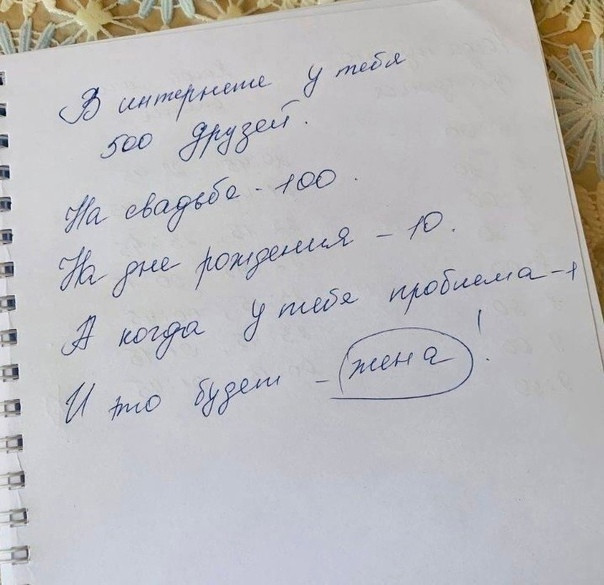 В интернете у тебя
500 друзей.
На свадьбе - 100.
На дне рождения - 10.
А когда у тебя проблема - 1
И то будет - жена!